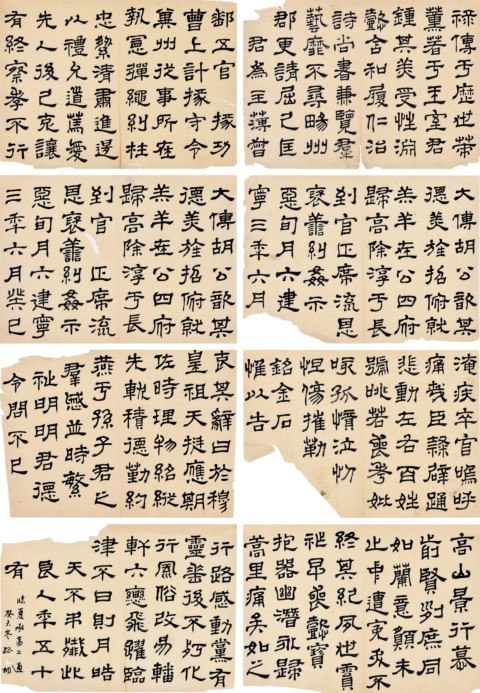 祿傳于歷世策
薰著于王室君
鍾其美受性淵
懿含和履仁治
詩尚書兼覽羣
藝靡不尋暢州
郡更請屈己匡
君為主簿督
郵五官掾功
曹上計掾守令
冀州從事所在
執憲彈繩糾枉
忠絜清肅進退
以禮允道篤愛
先人後己克讓
有終察孝不行
大傅胡公歆其
德美旌招俯就
羔羊在公四府
歸高除淳于長
到官正席流恩
褒善糾姦示
惡旬月六建
寧三年六月
大傅胡公歆其
德美旌招俯就
羔羊在公四府
歸高除淳于長
到官正席流
恩褒善糾姦示
惡旬月六建寧
三年六月癸巳
淹疾卒官嗚呼
痛哉臣隸辟踊
悲動左右百姓
號咷若喪考妣
咳孤憤泣忉
怛傷摧勒
銘金石
惟以告
哀其辭曰於穆
皇祖天挺應期
佐時理物紹縱
先軌積德勤約
燕于孫子君之
羣慼並時繁
祉明明君德
令問不已
高山景行慕
前賢列庶同
如蘭意願未
止中遭冤夭不
終其紀夙世賓
祚早喪懿寶
抱器幽潛永歸
蒿里痛矣如之
行路感動黨有
靈垂後不朽化
行風俗改易轓
軒六轡飛躍臨
津不日則月皓
天不弔殲此
良人年五十
有
臨夏承第二通
癸未冬